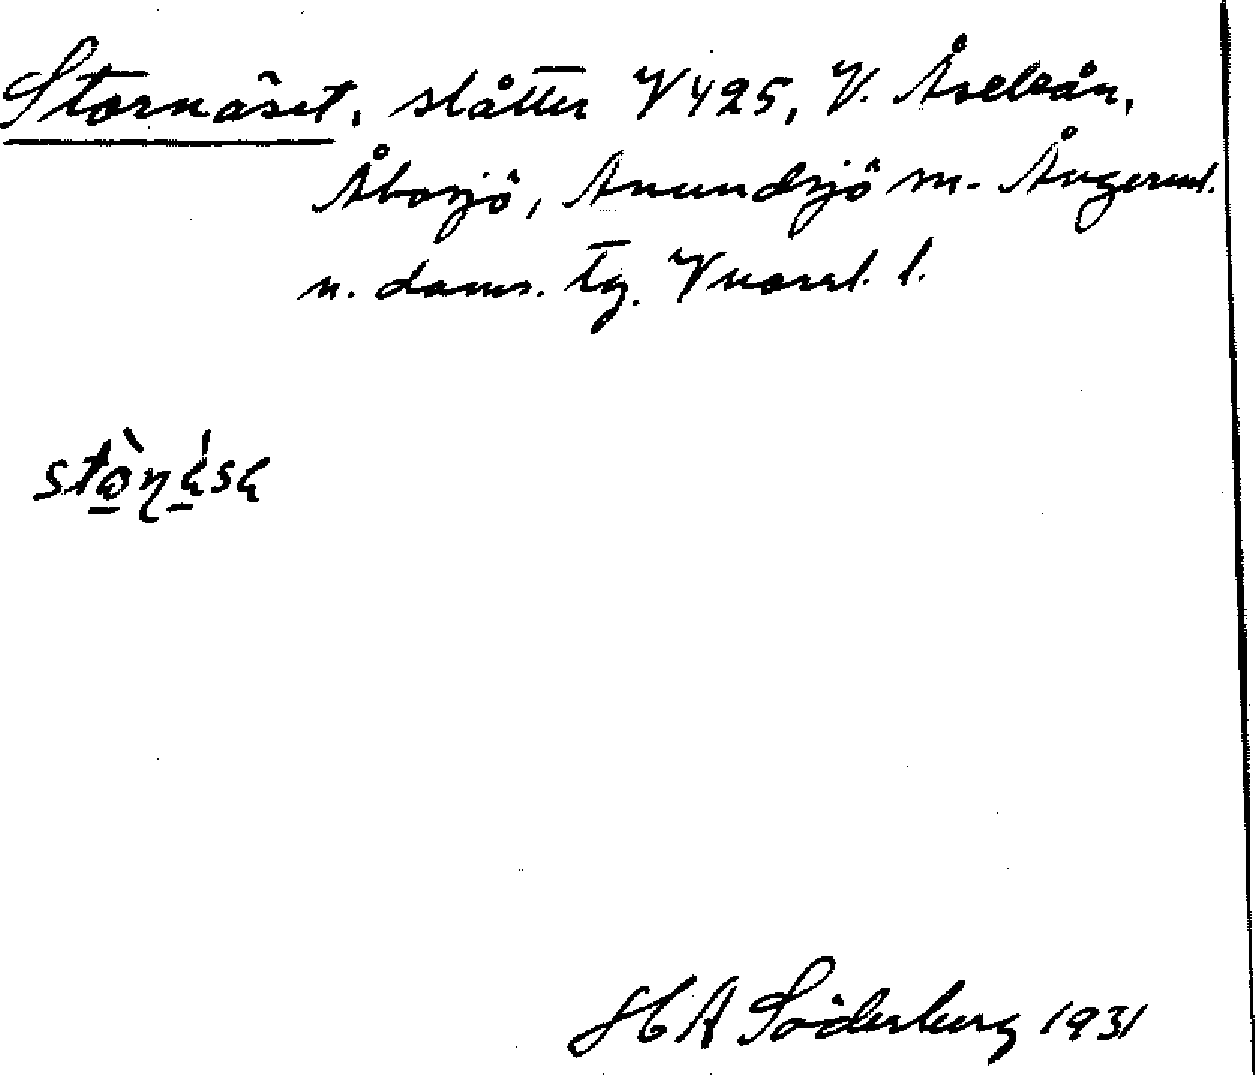 Stornäset, slåtter V 425, V. Åseleån,
Åbosjö, Anundsjö sn. Ångerml.
n. doms. tg. Vnorrl. l.
H A Söderberg 1931